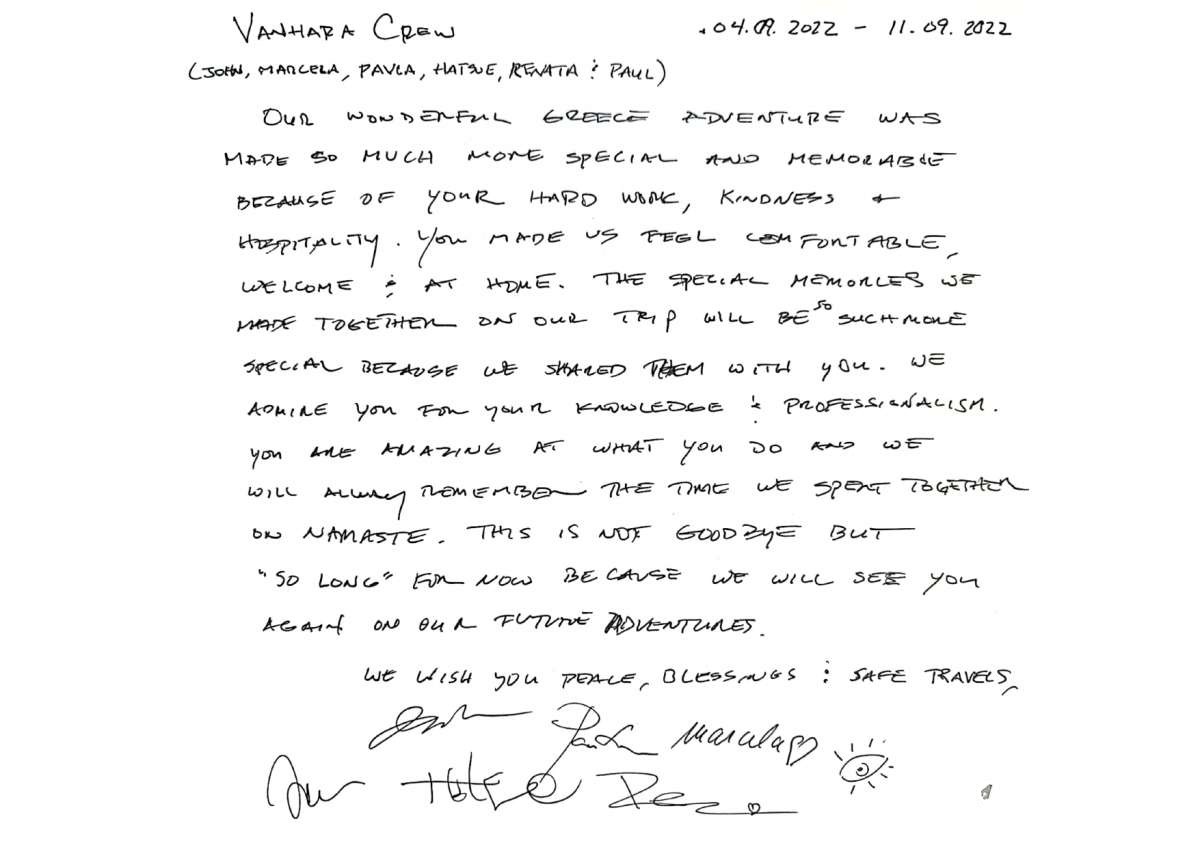 VANHARA CREW .04.09.2022 - 11.09.2022
(JOHN, MARCELA, PAVLA, HATSUE, RENATA & PAUL)
OUR WONDERFUL GREECE ADVENTURE WAS
MADE SO MUCH MORE SPECIAL AND MEMORABLE
BECAUSE OF YOUR HARD WORK, KINDNESS &
HOSPITALITY. YOU MADE US FEEL COMFORTABLE,
WELCOME & AT HOME. THE SPECIAL MEMORIES WE
MADE TOGETHER ON OUR TRIP WILL BE SO SUCH MORE
SPECIAL BECAUSE WE SHARED THEM WITH YOU. WE
ADMIRE YOU FOR YOUR KNOWLEDGE & PROFESSIONALISM.
YOU ARE AMAZING AT WHAT YOU DO AND WE
WILL ALWAYS REMEMBER THE TIME WE SPENT TOGETHER
ON NAMASTE. THIS IS NOT GOODBYE BUT
"SO LONG" FOR NOW BECAUSE WE WILL SEE YOU
AGAIN ON OUR FUTURE ADVENTURES.
WE WISH YOU PEACE, BLESSINGS & SAFE TRAVELS,
Marcela